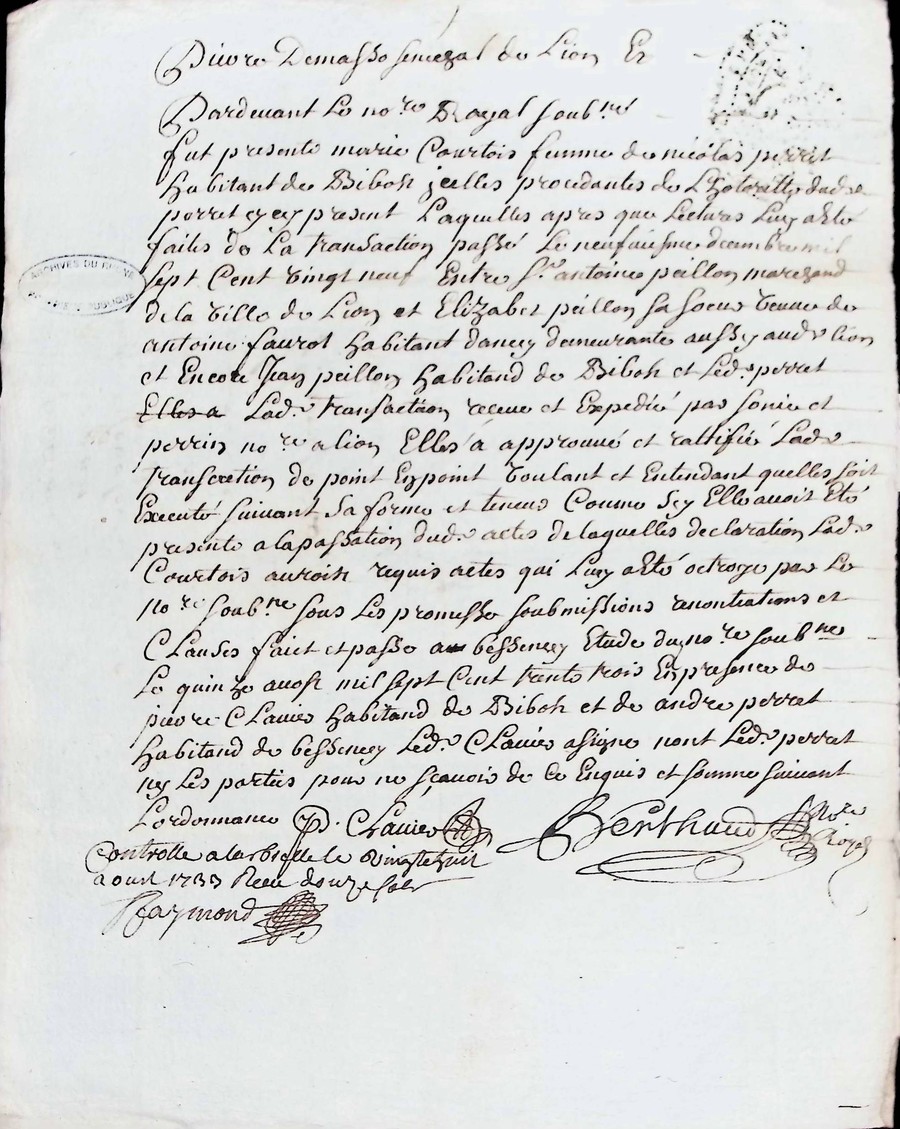 Pierre Demasso senezal de Lion Et
Pardevant Le no.re Royal soub.né
fut presente marie Courtois femme de nicolas perret
habitant de Bibot jcelles procedantes de L'hotoritte dud.
perret cy et present Laquelles apres que Lectures Luy a Eté
faites de La transaction passé Le neufuiesme decembre mil
sept Cent Vingt neuf Entre S.r antoine peillon marchand
ARCHIVES DU RHONE
de la Ville de Lion et Elizabet peillon sa soeur Veuve de
antoine faurot habitant dancy demeurante aussy aud. lion
et Encore Jean peillon habitand de Biboh et Led. perret
Elles a Lad. transaction receue et Expedié par sonie et
perrin no.re a lion Elles a approuué et rattifié Lad.
transcretion de point En point Voulant et Entendant quelles soit
Executé suiuant sa forme et teneur Comme sy Elle auoit Eté
presente a la passation dud. actes de laquelles declaration Lad.
Courtois auroit requis actes qui Luy a Eté octroye par Le
no.re soub.ne sous Les promesse soubmissions renontiations et
Clauses fait et passe a bessenay Etude du no.re soub.ne
Le quinze aoust mil sept Cent trente trois En presence de
pierre Clauies habitand de Biboh et de andre perret
habitand de bessenay Led. Clauies a signe nont Led. perret
ny Les parties pour ne sçauoir de Ce Enquis et somme suiuant
Lordonnance P. Clauies Berthaud No.re Royal
Controlle a larbrelle le Vingt huit
aoust 1733 Receu douze sols
Raymond